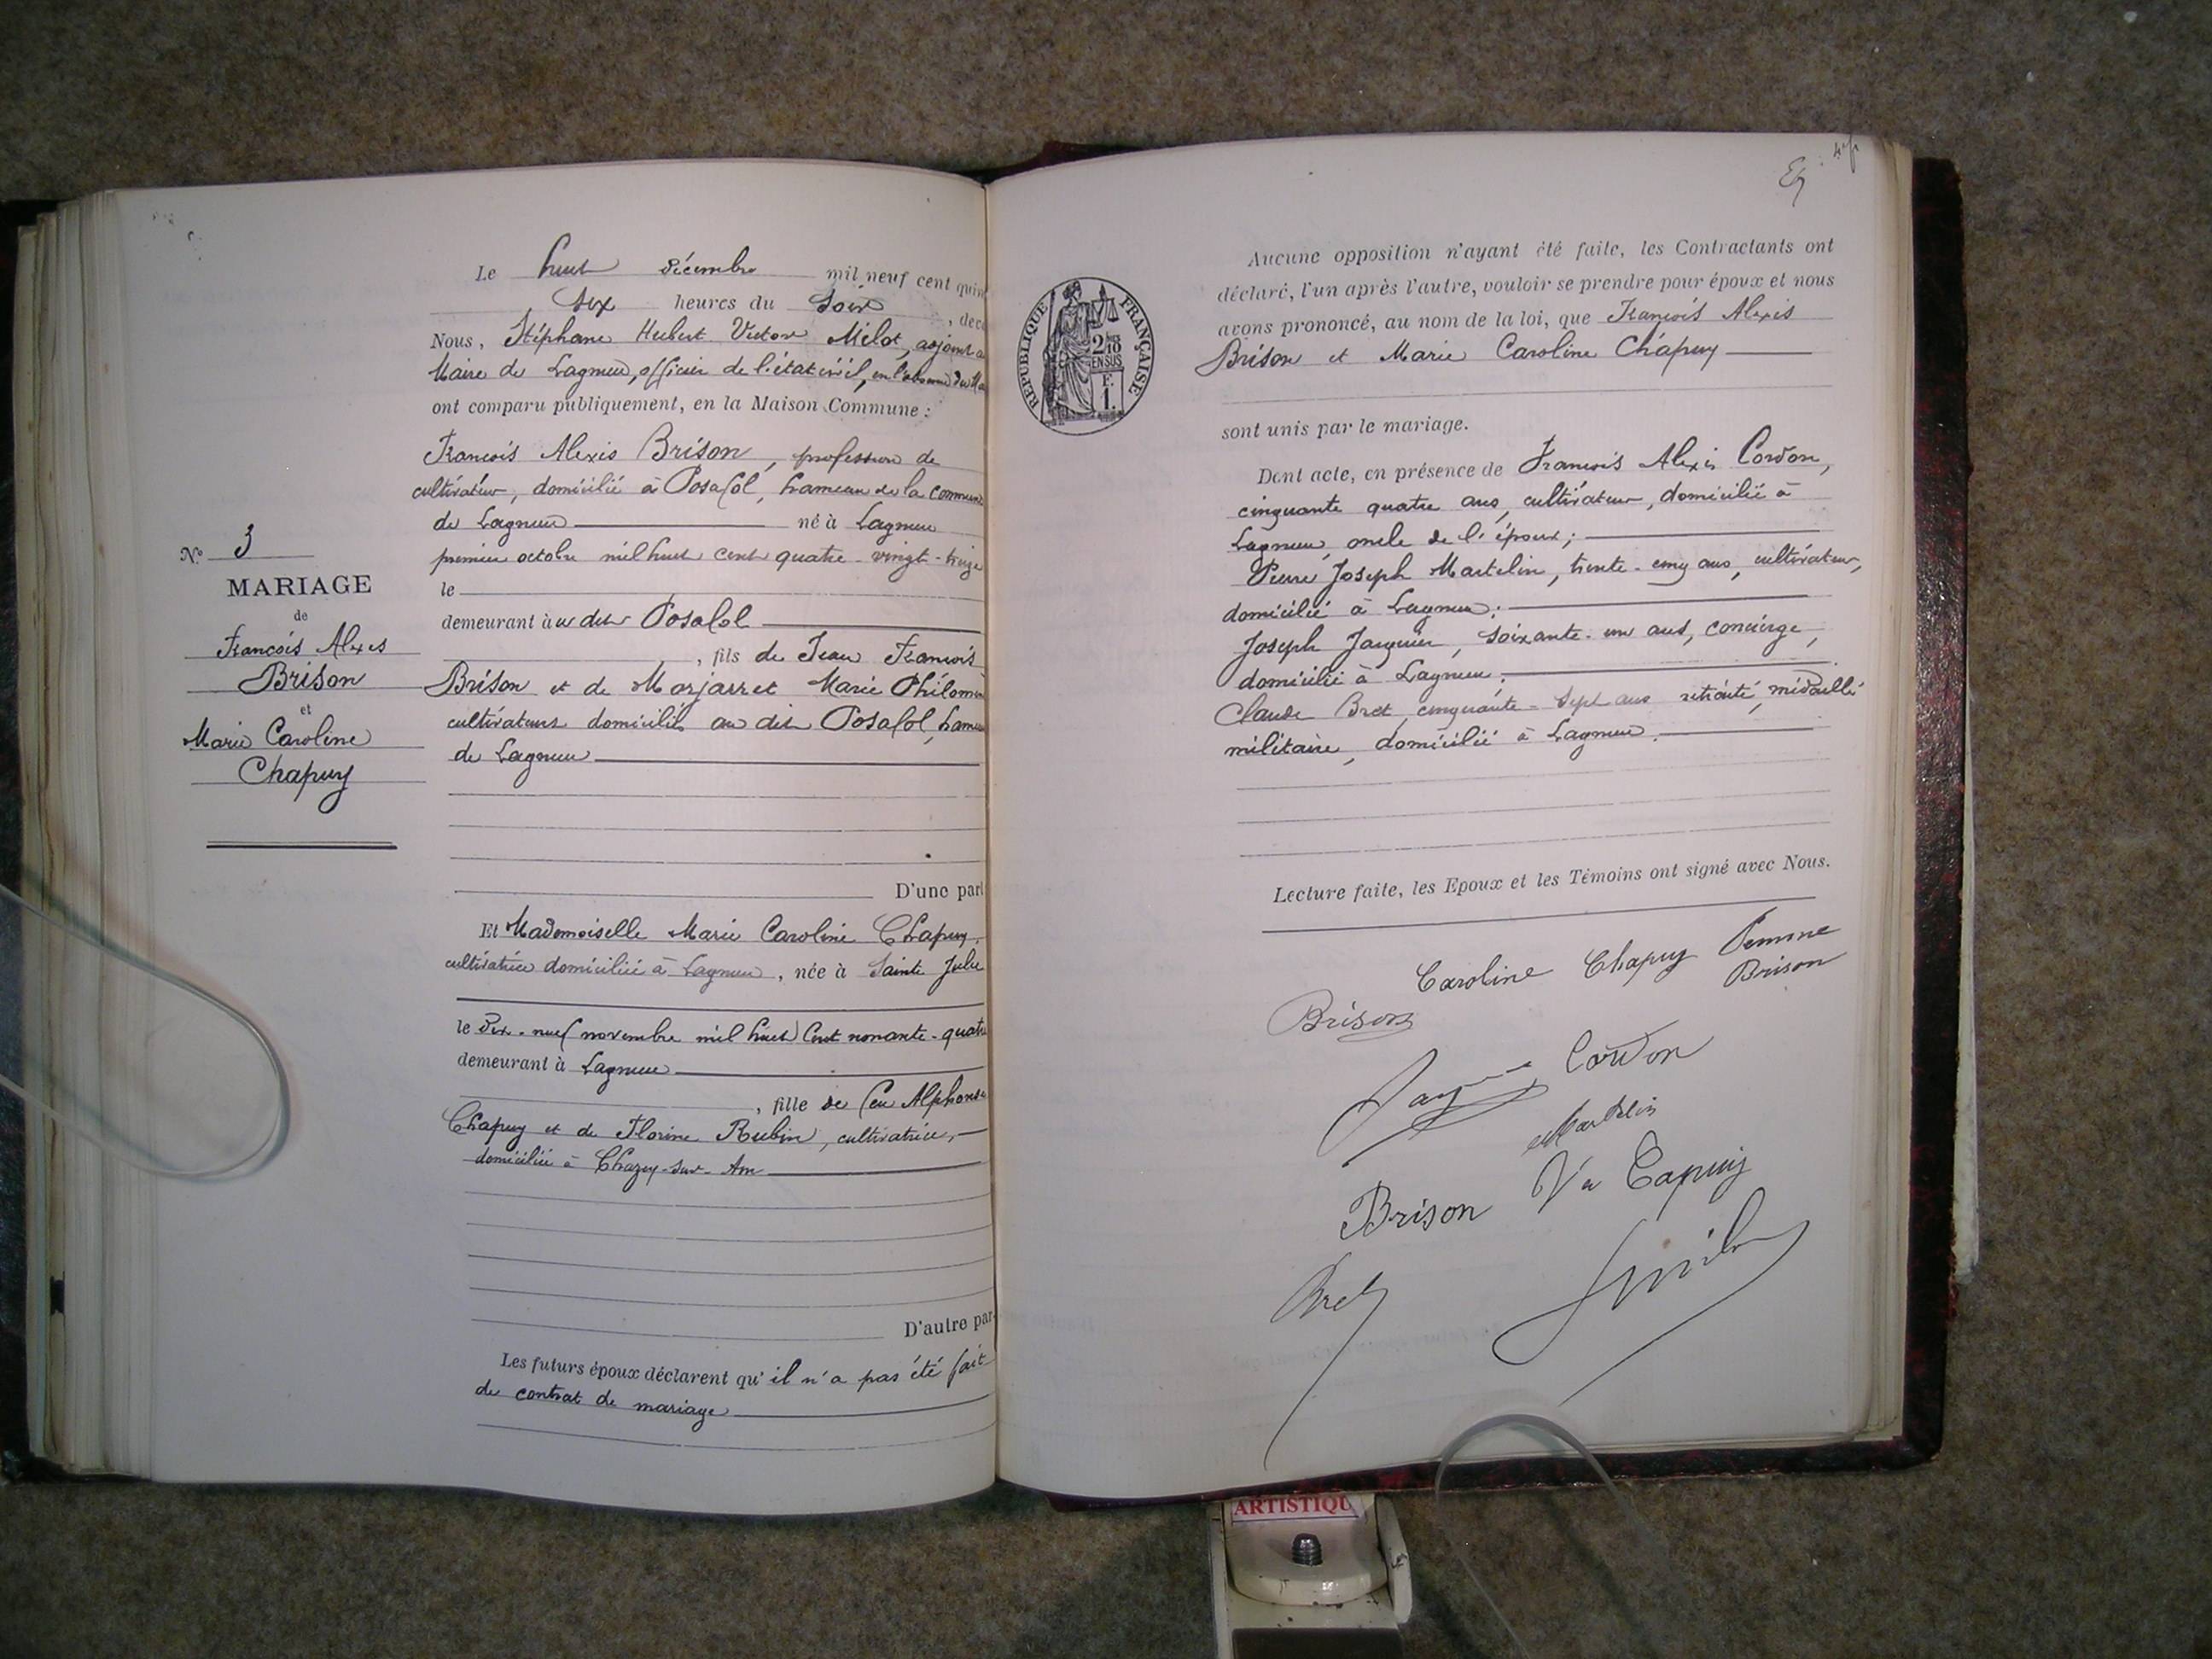 Le huit décembre mil neuf cent quin
six heures du soir, dec
Nous, Stéphane Hubert Victor Mélot, adjoint a
Maire de Lagnieu, officier de l'état civil, en l'absence du Ma
ont comparu publiquement, en la Maison Commune :
François Alexis Brison, profession de
cultivateur, domicilié à Posafol, hameau de la commune
de Lagnieu né à Lagnieu
premier octobre mil huit cent quatre-vingt-treize
le
demeurant à u dit Posafol
, fils de Jean François
Brison et de Marjarret Marie Philomène
cultivateurs domiciliés au dit Posafol, hameau
de Lagnieu
D'une part
Et Mademoiselle Marie Caroline Chapuy,
cultivatrice domiciliée à Lagnieu, née à Sainte Julie
le dix-neuf novembre mil huit cent nonante-quatre
demeurant à Lagnieu
, fille de feu Alphonse
Chapuy et de Florine Rubin, cultivatrice,
domiciliée à Chazey-sur-Ain
D'autre par
Les futurs époux déclarent qu'il n'a pas été fait
de contrat de mariage
N° 3
MARIAGE
de
François Alexis
Brison
et
Marie Caroline
Chapuy
RÉPUBLIQUE FRANÇAISE
2/10
EN SUS
F.
1.
Aucune opposition n'ayant été faite, les Contractants ont
déclaré, l'un après l'autre, vouloir se prendre pour époux et nous
avons prononcé, au nom de la loi, que François Alexis
Brison et Marie Caroline Chapuy
sont unis par le mariage.
Dont acte, en présence de François Alexis Cordon,
cinquante quatre ans, cultivateur, domicilié à
Lagnieu, oncle de l'époux;
Pierre Joseph Martelin, trente-cinq ans, cultivateur,
domicilié à Lagnieu;
Joseph Jacquier, soixante-un ans, concierge,
domicilié à Lagnieu;
Claude Bret, cinquante-sept ans retraité, médaillé
militaire, domicilié à Lagnieu.
Lecture faite, les Epoux et les Témoins ont signé avec Nous.
Caroline Chapuy Femme
Brison
Brison
Cordon
Martelin
Brison Ve Capuy
Bret
ARTISTIQU